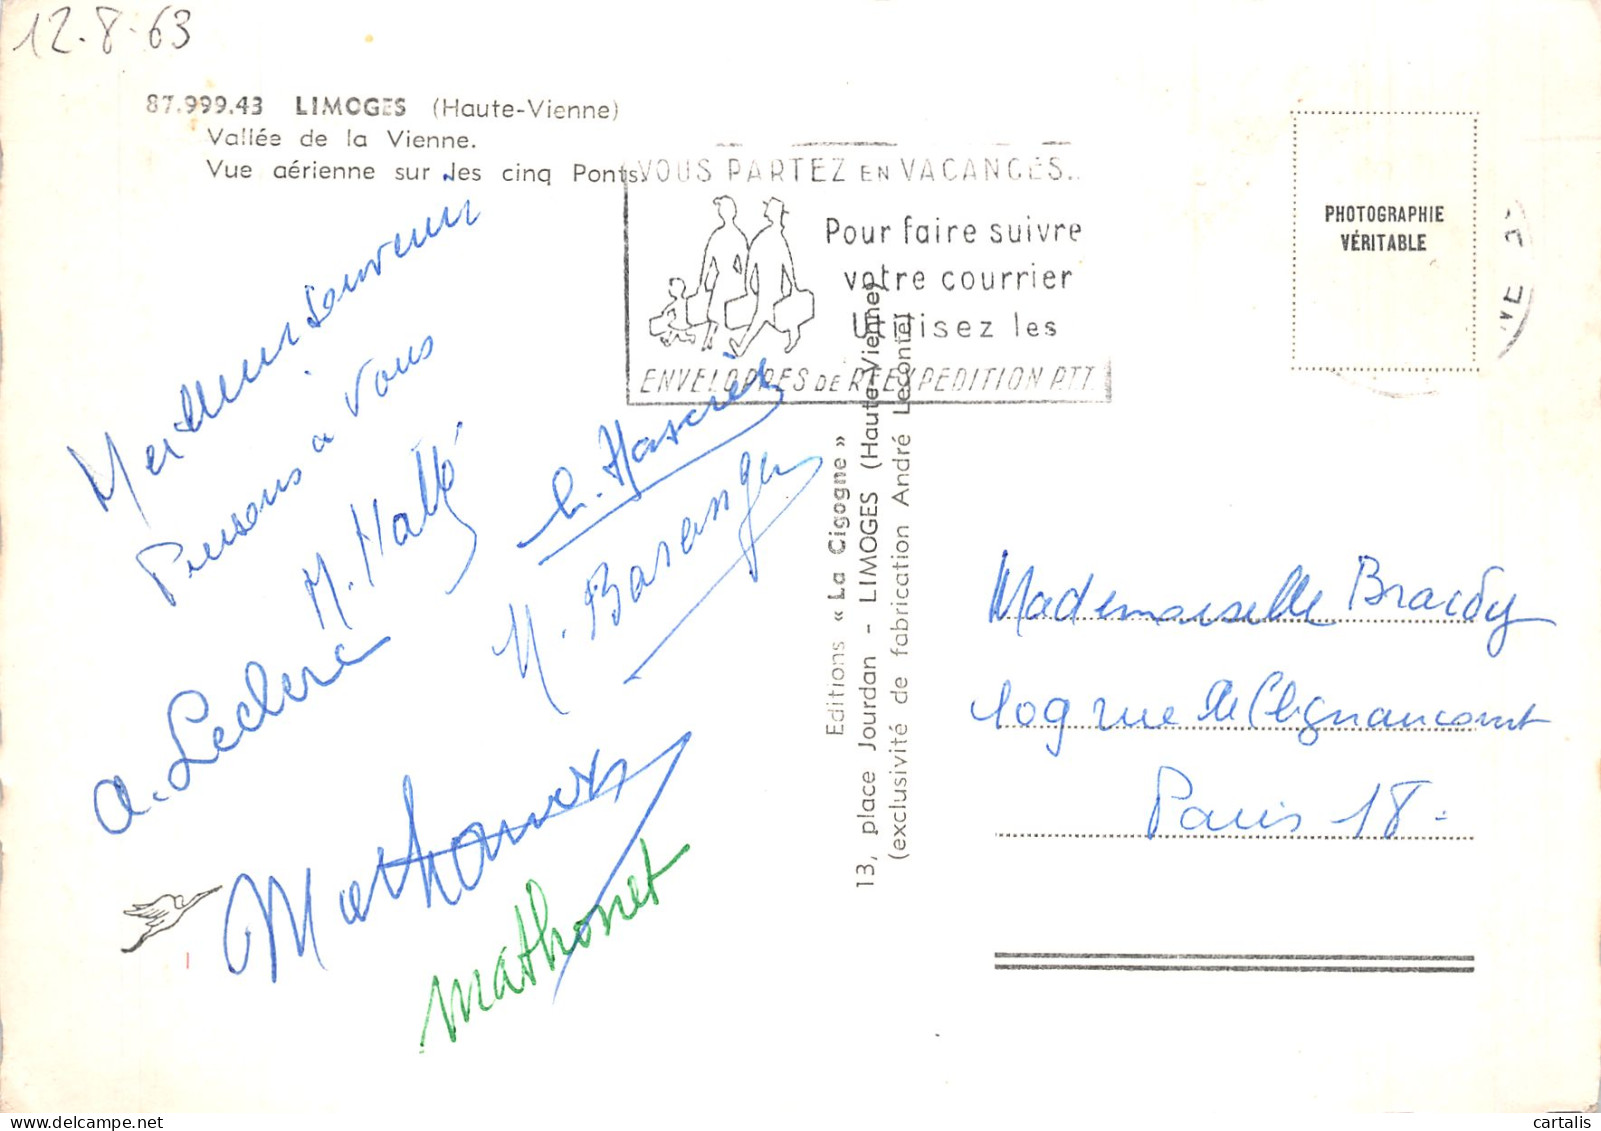 12.8.63
87.999.43 LIMOGES (Haute-Vienne)
Vallée de la Vienne.
Vue aérienne sur les cinq Ponts.
VOUS PARTEZ EN VACANCES..
Pour faire suivre
votre courrier
Utilisez les
ENVELOPPES DE REEXPEDITION P.T.T.
PHOTOGRAPHIE
VÉRITABLE
Meilleurs souvenirs
Pensons à vous
M. Hallé
A. Leclerc
M. Basanger
Mathonet
mathonet
Editions « La Cigogne »
13, place Jourdan - LIMOGES (Haute-Vienne)
(exclusivité de fabrication André Leconte)
Mademoiselle Brardy
109 rue de Clignancourt
Paris 18 -
cartalis